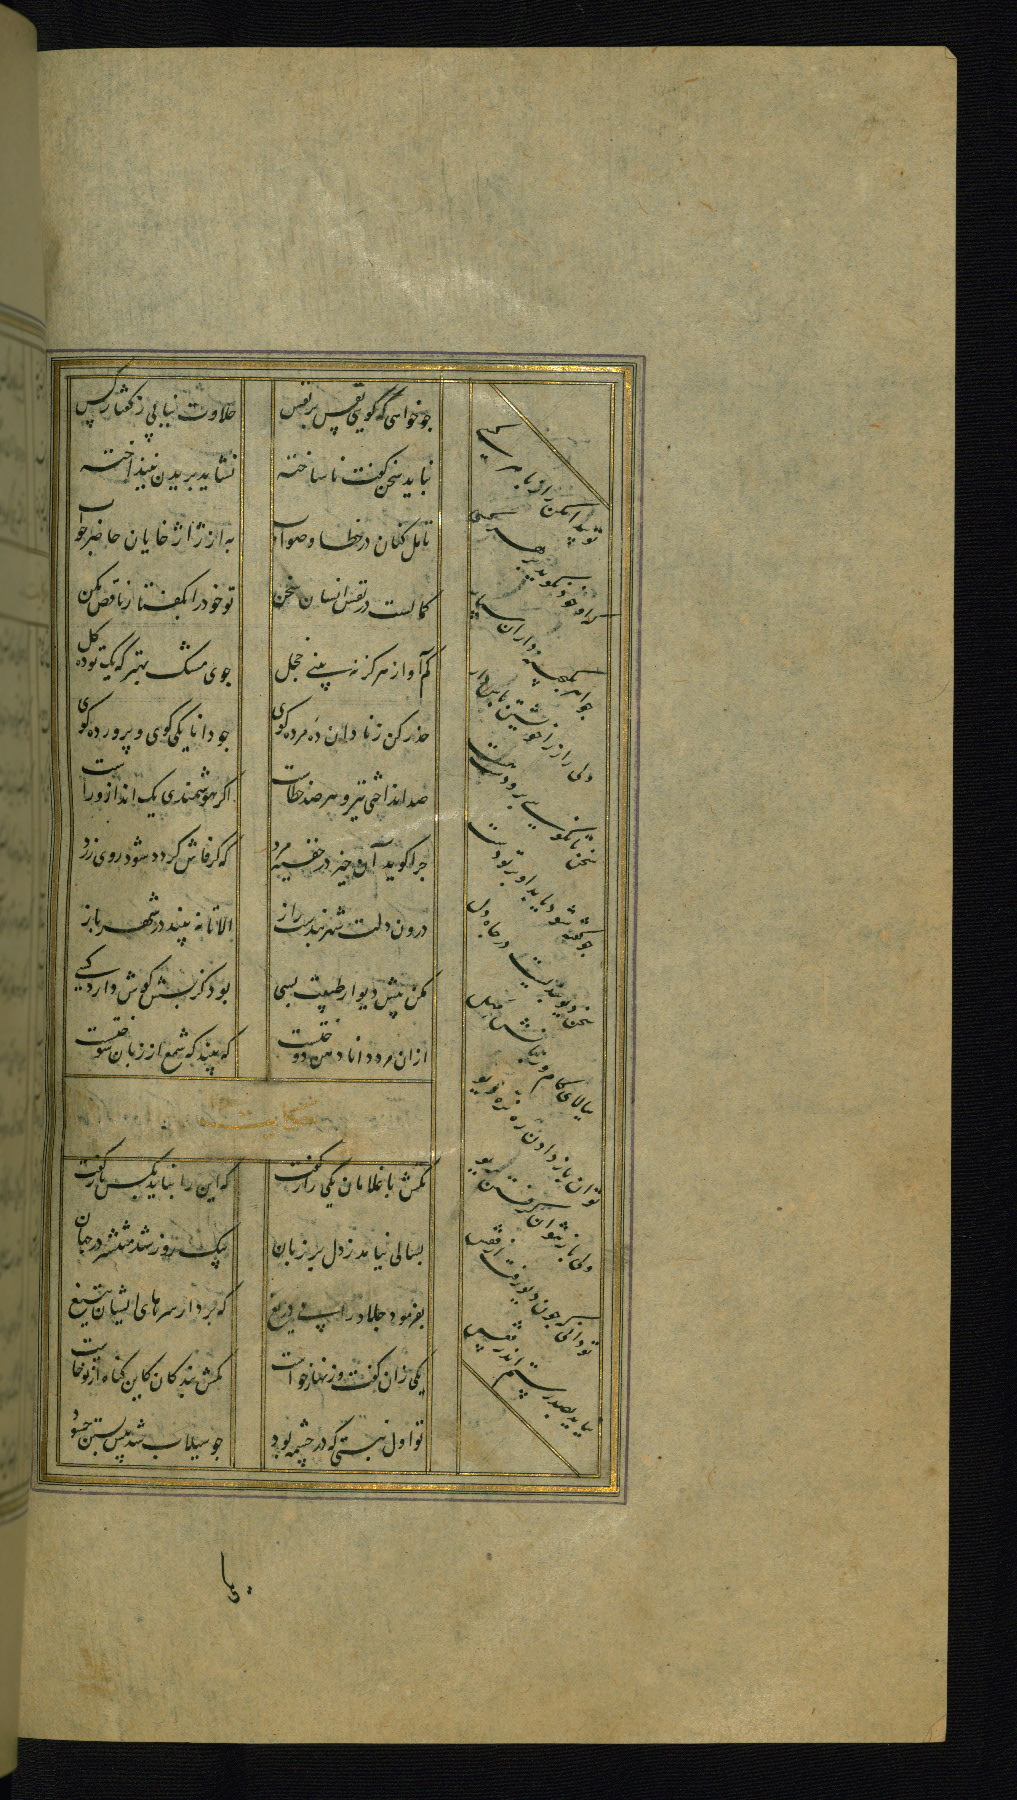 چو خواهی که گویی نفس بر نفس حلاوت نیابی ز گفتار کس
نباید سخن گفت ناساخته نشاید بریدن نینداخته
تامل کنان در خطا و صواب به از ژاژخایان حاضر جواب
کمالست در نفس انسان سخن تو خود را بگفتار ناقص مکن
کم آواز هرگز نه بینی خجل جوی مشک بهتر که یک توده گل
حذر کن ز نادان ده مرده گوی چو دانا یکی گوی و پرورده گوی
صد انداختی تیر و هر صد خطاست اگر هوشمندی یک انداز و راست
چرا گوید آن چیز در خفیه مرد که گر فاش گردد شود روی زرد
درون دلت شهربندست راز الا تا نه بیند در شهر باز
مکن پیش دیوار غیبت بسی بود کز پسش گوش دارد کسی
ازان مرد دانا دهن دوختست که بیند که شمع از زبان سوختست
حکایت
تکش با غلامان یکی راز گفت که این را نباید بکس باز گفت
بسالی نیامد ز دل بر زبان بیک روز شد منتشر در جهان
بفرمود جلاد را بی دریغ که بردار سرهای ایشان بتیغ
یکی زان گفت و زنهار خواست مکش بندگان کاین گناه از تو خاست
تو اول نبستی که در چشمه بود چو سیلاب شد پیش بستن چه سود
تو پیدا مکن راز با هر کسی
که او خود بگوید بر هر کسی
جواهر بگنجینه داران سپار
ولی راز را خویشتن پاس دار
سخن تا نگویی برو دست هست
چو گفته شود یابد او بر تو دست
سخن دیو بندیست در چاه دل
ببالای کام و زبانش مهل
توان باز دادن ره نره دیو
ولی باز نتوان گرفتن بریو
تو دانی که چون دیو رفت از قفس
نیاید بصد رستم اندر قفس